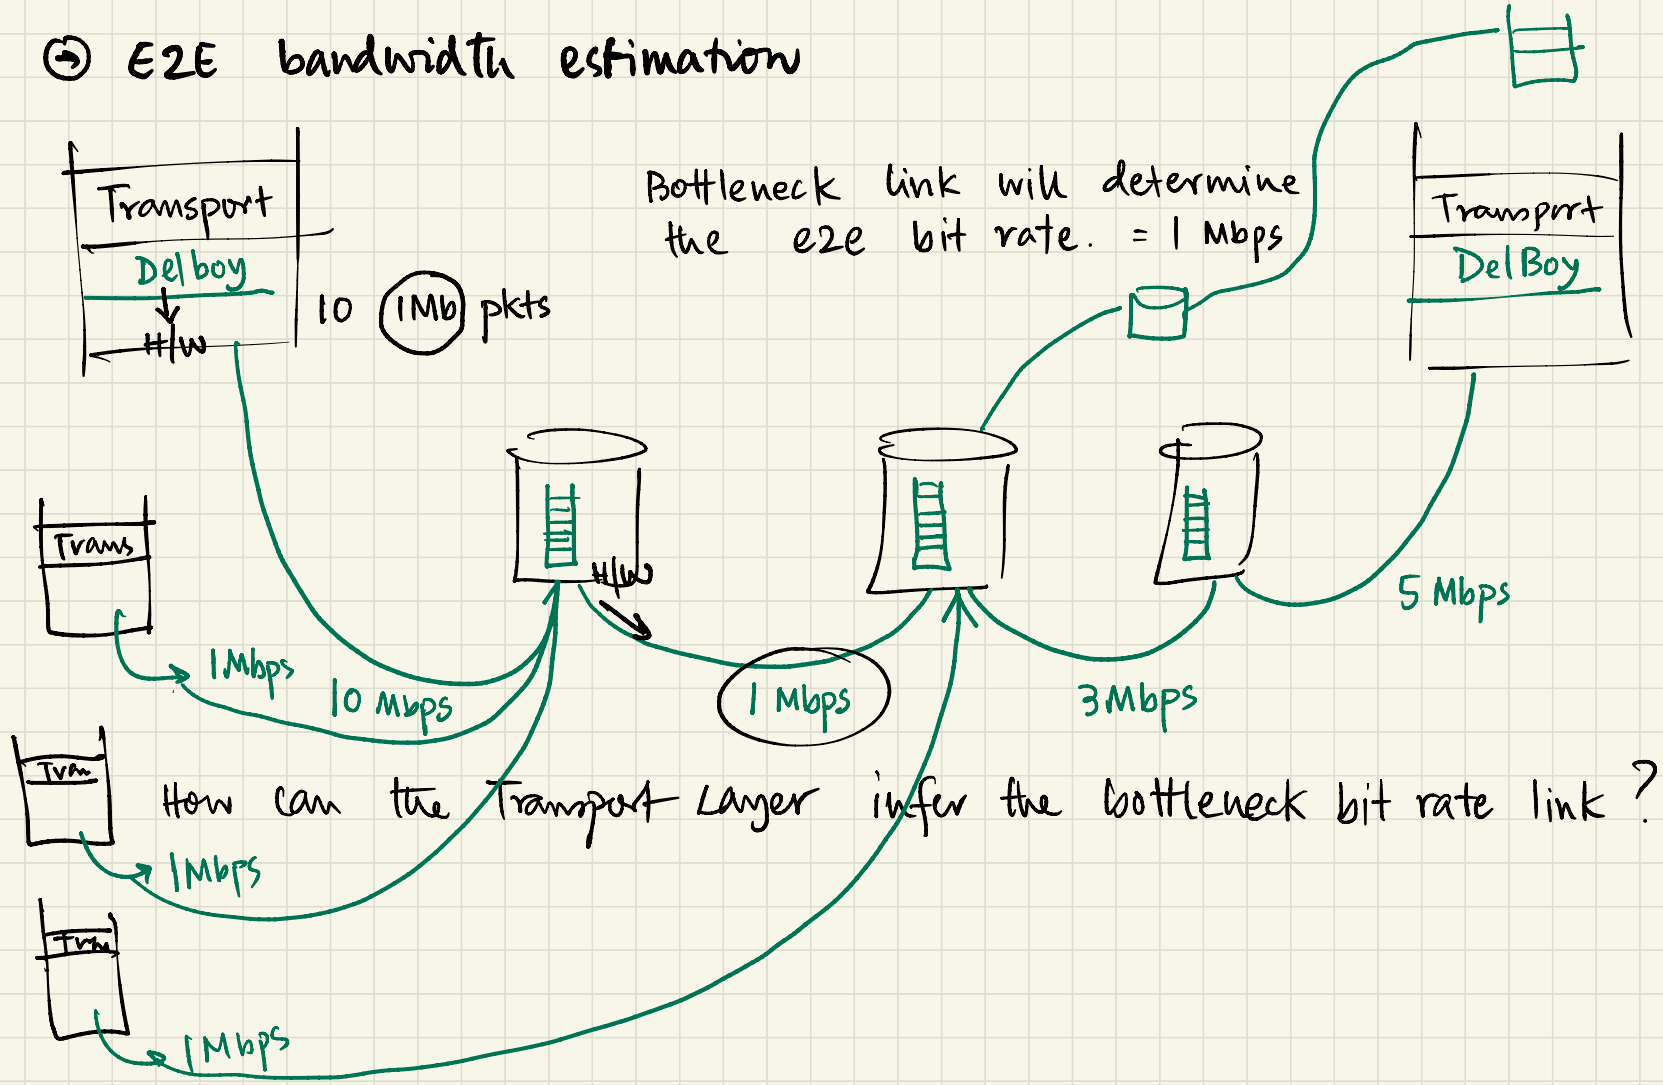 → E2E bandwidth estimation
Transport
Delboy
H/W
10 1Mb pkts
Bottleneck link will determine
the e2e bit rate. = 1 Mbps
Transport
DelBoy
H/W
Trans
1Mbps
10 Mbps
1 Mbps
3Mbps
5 Mbps
Tran
How can the Transport Layer infer the bottleneck bit rate link ?
1Mbps
Trns
1Mbps